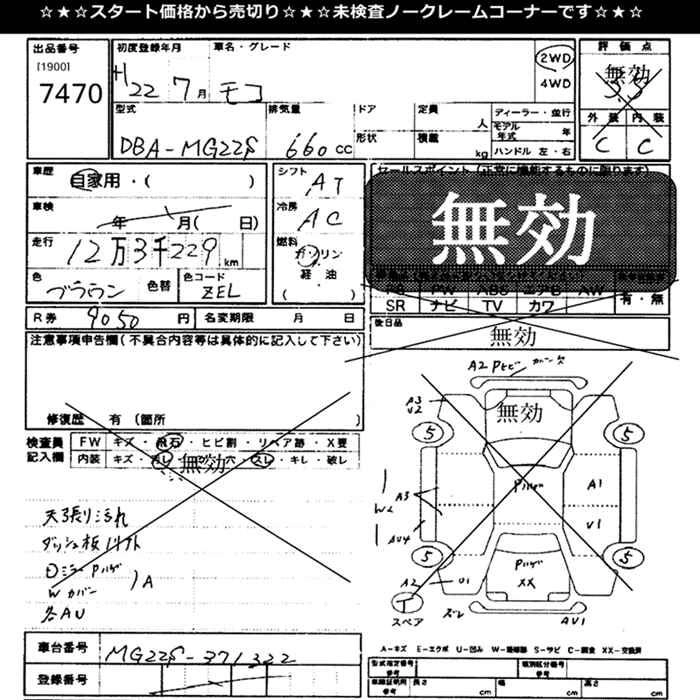 ☆★☆★スタート価格から売切り☆★☆★未検査ノークレームコーナーです☆★☆
出品番号
[1900]
7470
初度登録年月
車名・グレード
H22 7月 モコ
2WD
4WD
評価点
無効
3.5
外装 内装
C C
型式
DBA-MG22S
排気量
660cc
ドア
形状
定員
人
積載
kg
ディーラー・並行
モデル年式 年
ハンドル 左・右
車歴
自家用・( )
シフト
AT
車検
年 月( 日)
冷房
AC
走行
12万3千229km
燃料
ガソリン
軽油
( )
色
ブラウン
色替
色コード
ZEL
R券 9050 円
名変期限 月 日
セールスポイント(正常に機能するものに限ります)
無効
SR ナビ TV カワ
有・無
後日品
無効
注意事項申告欄(不具合内容等は具体的に記入して下さい)
修復歴 有(箇所 )
検査員記入欄
FW キズ・飛石・ヒビ割・リペア跡・X要
内装 キズ・コゲ・穴・スレ・キレ・破レ
無効
天張り汚れ
ダッシュ板
W カバー
A
各AU
A2
カバー欠
A3
U2
無効
5
5
5
5
A3
W2
A1
U1
XX
A2
U1
T
スペア
ズレ
AU1
A-キズ E-エクボ U-凹み W-補修跡 S-サビ C-腐食 XX-交換済
車台番号
MG22S-371322
登録番号
型式指定番号
参考
類別区分番号
参考
車検証明用
参考
長さ cm
幅 cm
高さ cm